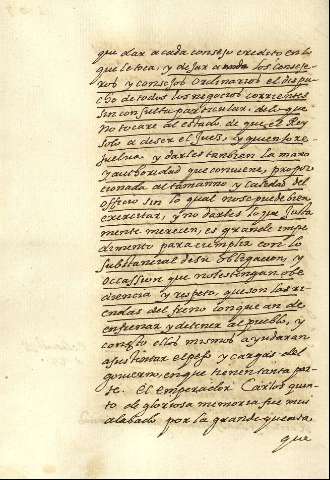 que dar a cada consejo credito en lo
que le toca, y dexar a los conseje-
ros y consejos ordinarios el despa-
cho de todos los negocios corrientes
sin consulta particular, de lo que
no tocare al estado, de que el Rey
solo a de ser el Juez, y quien lo re-
suelva, y darles tambien la mano
y authoridad que conviene, propor-
cionada al tamanno y calidad del
officio sin lo qual no se puede bien
exercitar, y no darles lo que justa-
mente merecen, es grande impe-
dimento para cumplir con lo
substancial de su obligacion, y
occassion que no les tengan obe
diencia, y respeto, que son las ri-
endas del freno con que an de
enfrenar y detener al pueblo, y
con esto ellos mismos ayudaran
a sustentar el peso y cargas del
govierno, en que tienen tanta par-
te. El emperador Carlos quin-
to de gloriosa memoria fue mui
alabado por la grande quenta,
que